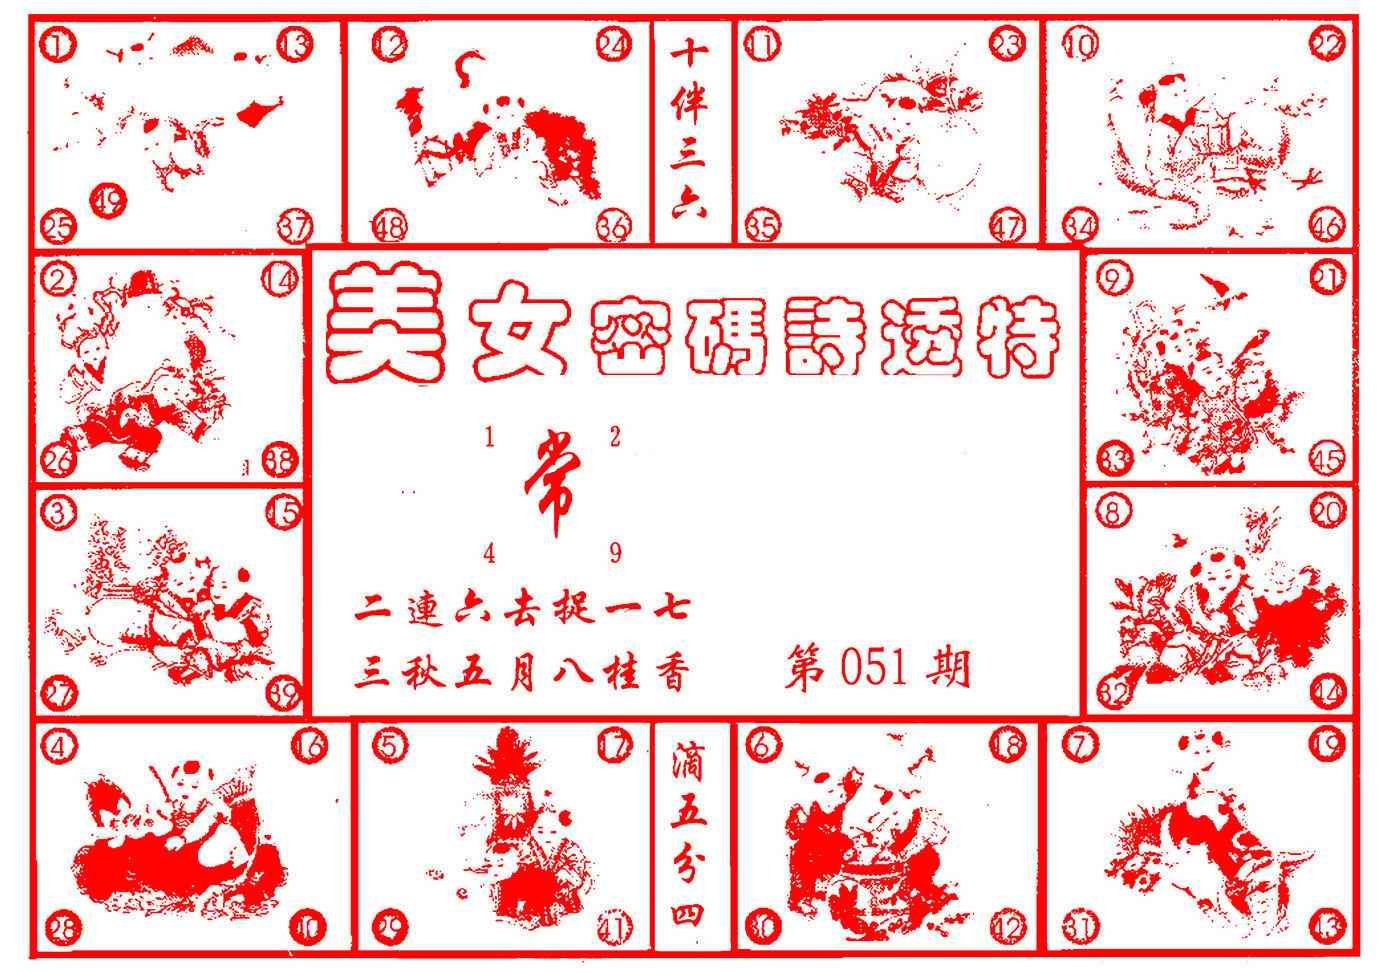 1 13 12 24 11 23 10 22
十伴三六
49
25 37 48 36 35 47 34 46
2 14 9 21
美女密碼詩透特
1 2
常
26 38 33 45
4 9
3 15 8 20
二連六去捉一七
三秋五月八桂香
第051期
27 39 32 44
4 16 5 17 6 18 7 19
滴五分四
28 40 29 41 30 42 31 43